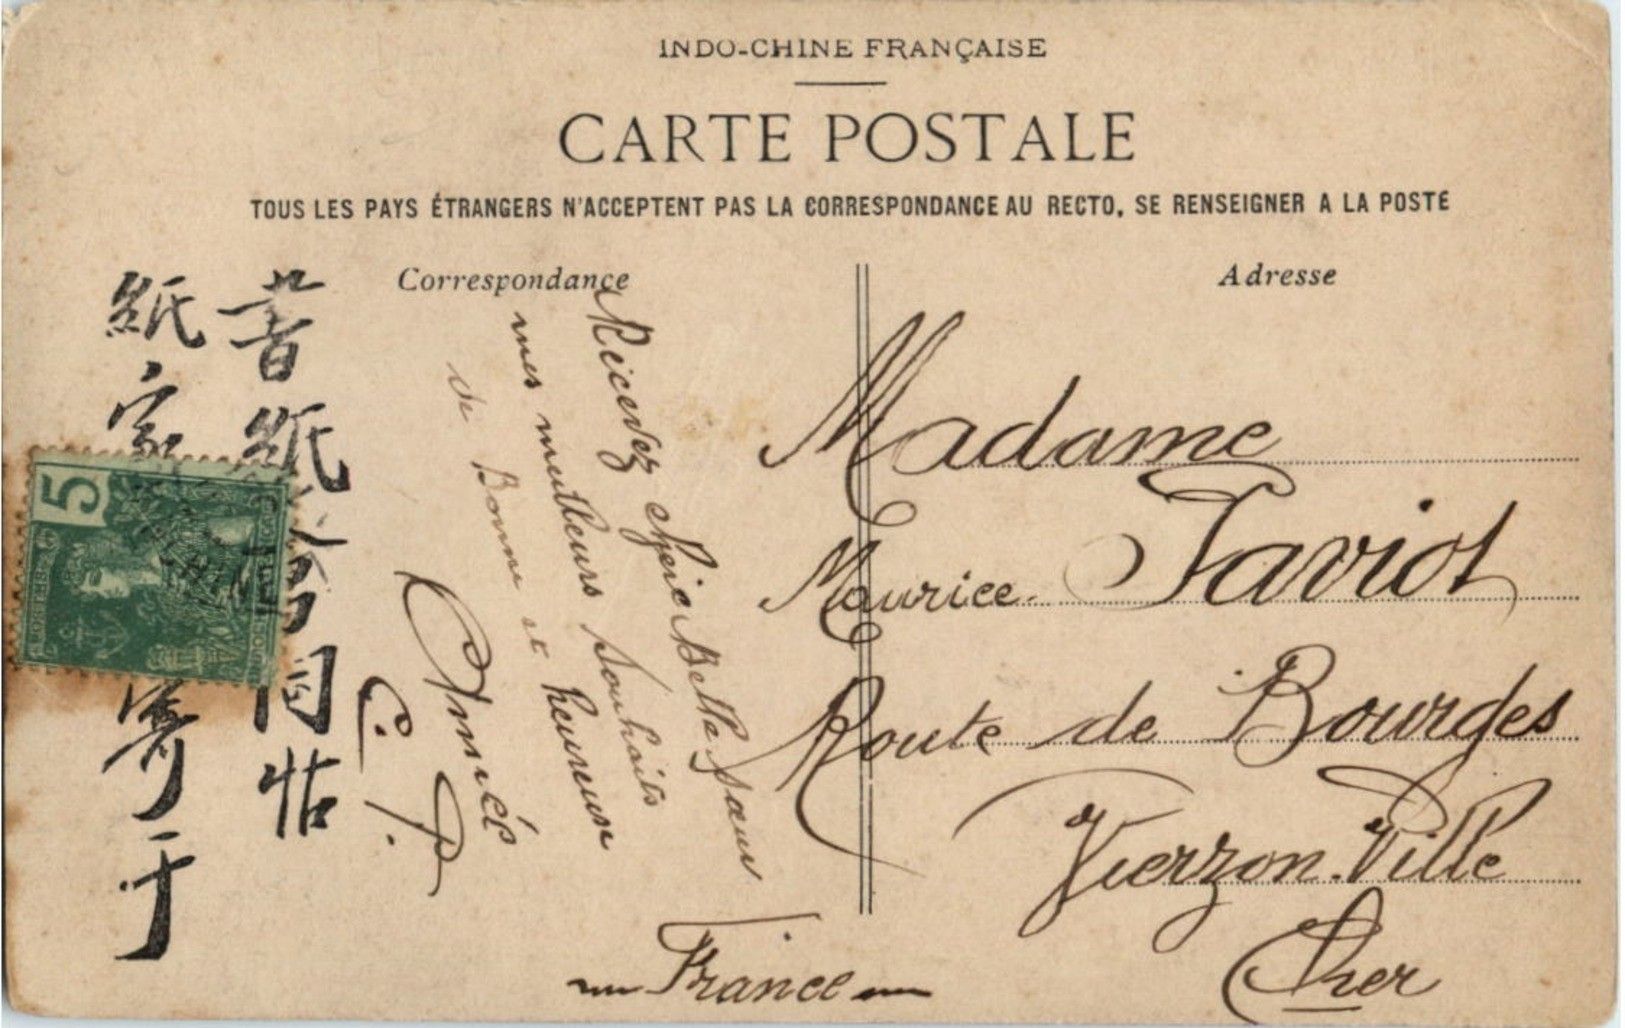 INDO-CHINE FRANÇAISE
CARTE POSTALE
TOUS LES PAYS ÉTRANGERS N'ACCEPTENT PAS LA CORRESPONDANCE AU RECTO, SE RENSEIGNER A LA POSTE
Correspondance
Recevez chère Belle Sœur
mes meilleurs souhaits
de Bonne et heureuse
Année
Adresse
Madame
Maurice Taviot
Route de Bourges
Vierzon-Ville
Cher
France
書紙
問帖
紙家
寄于
5